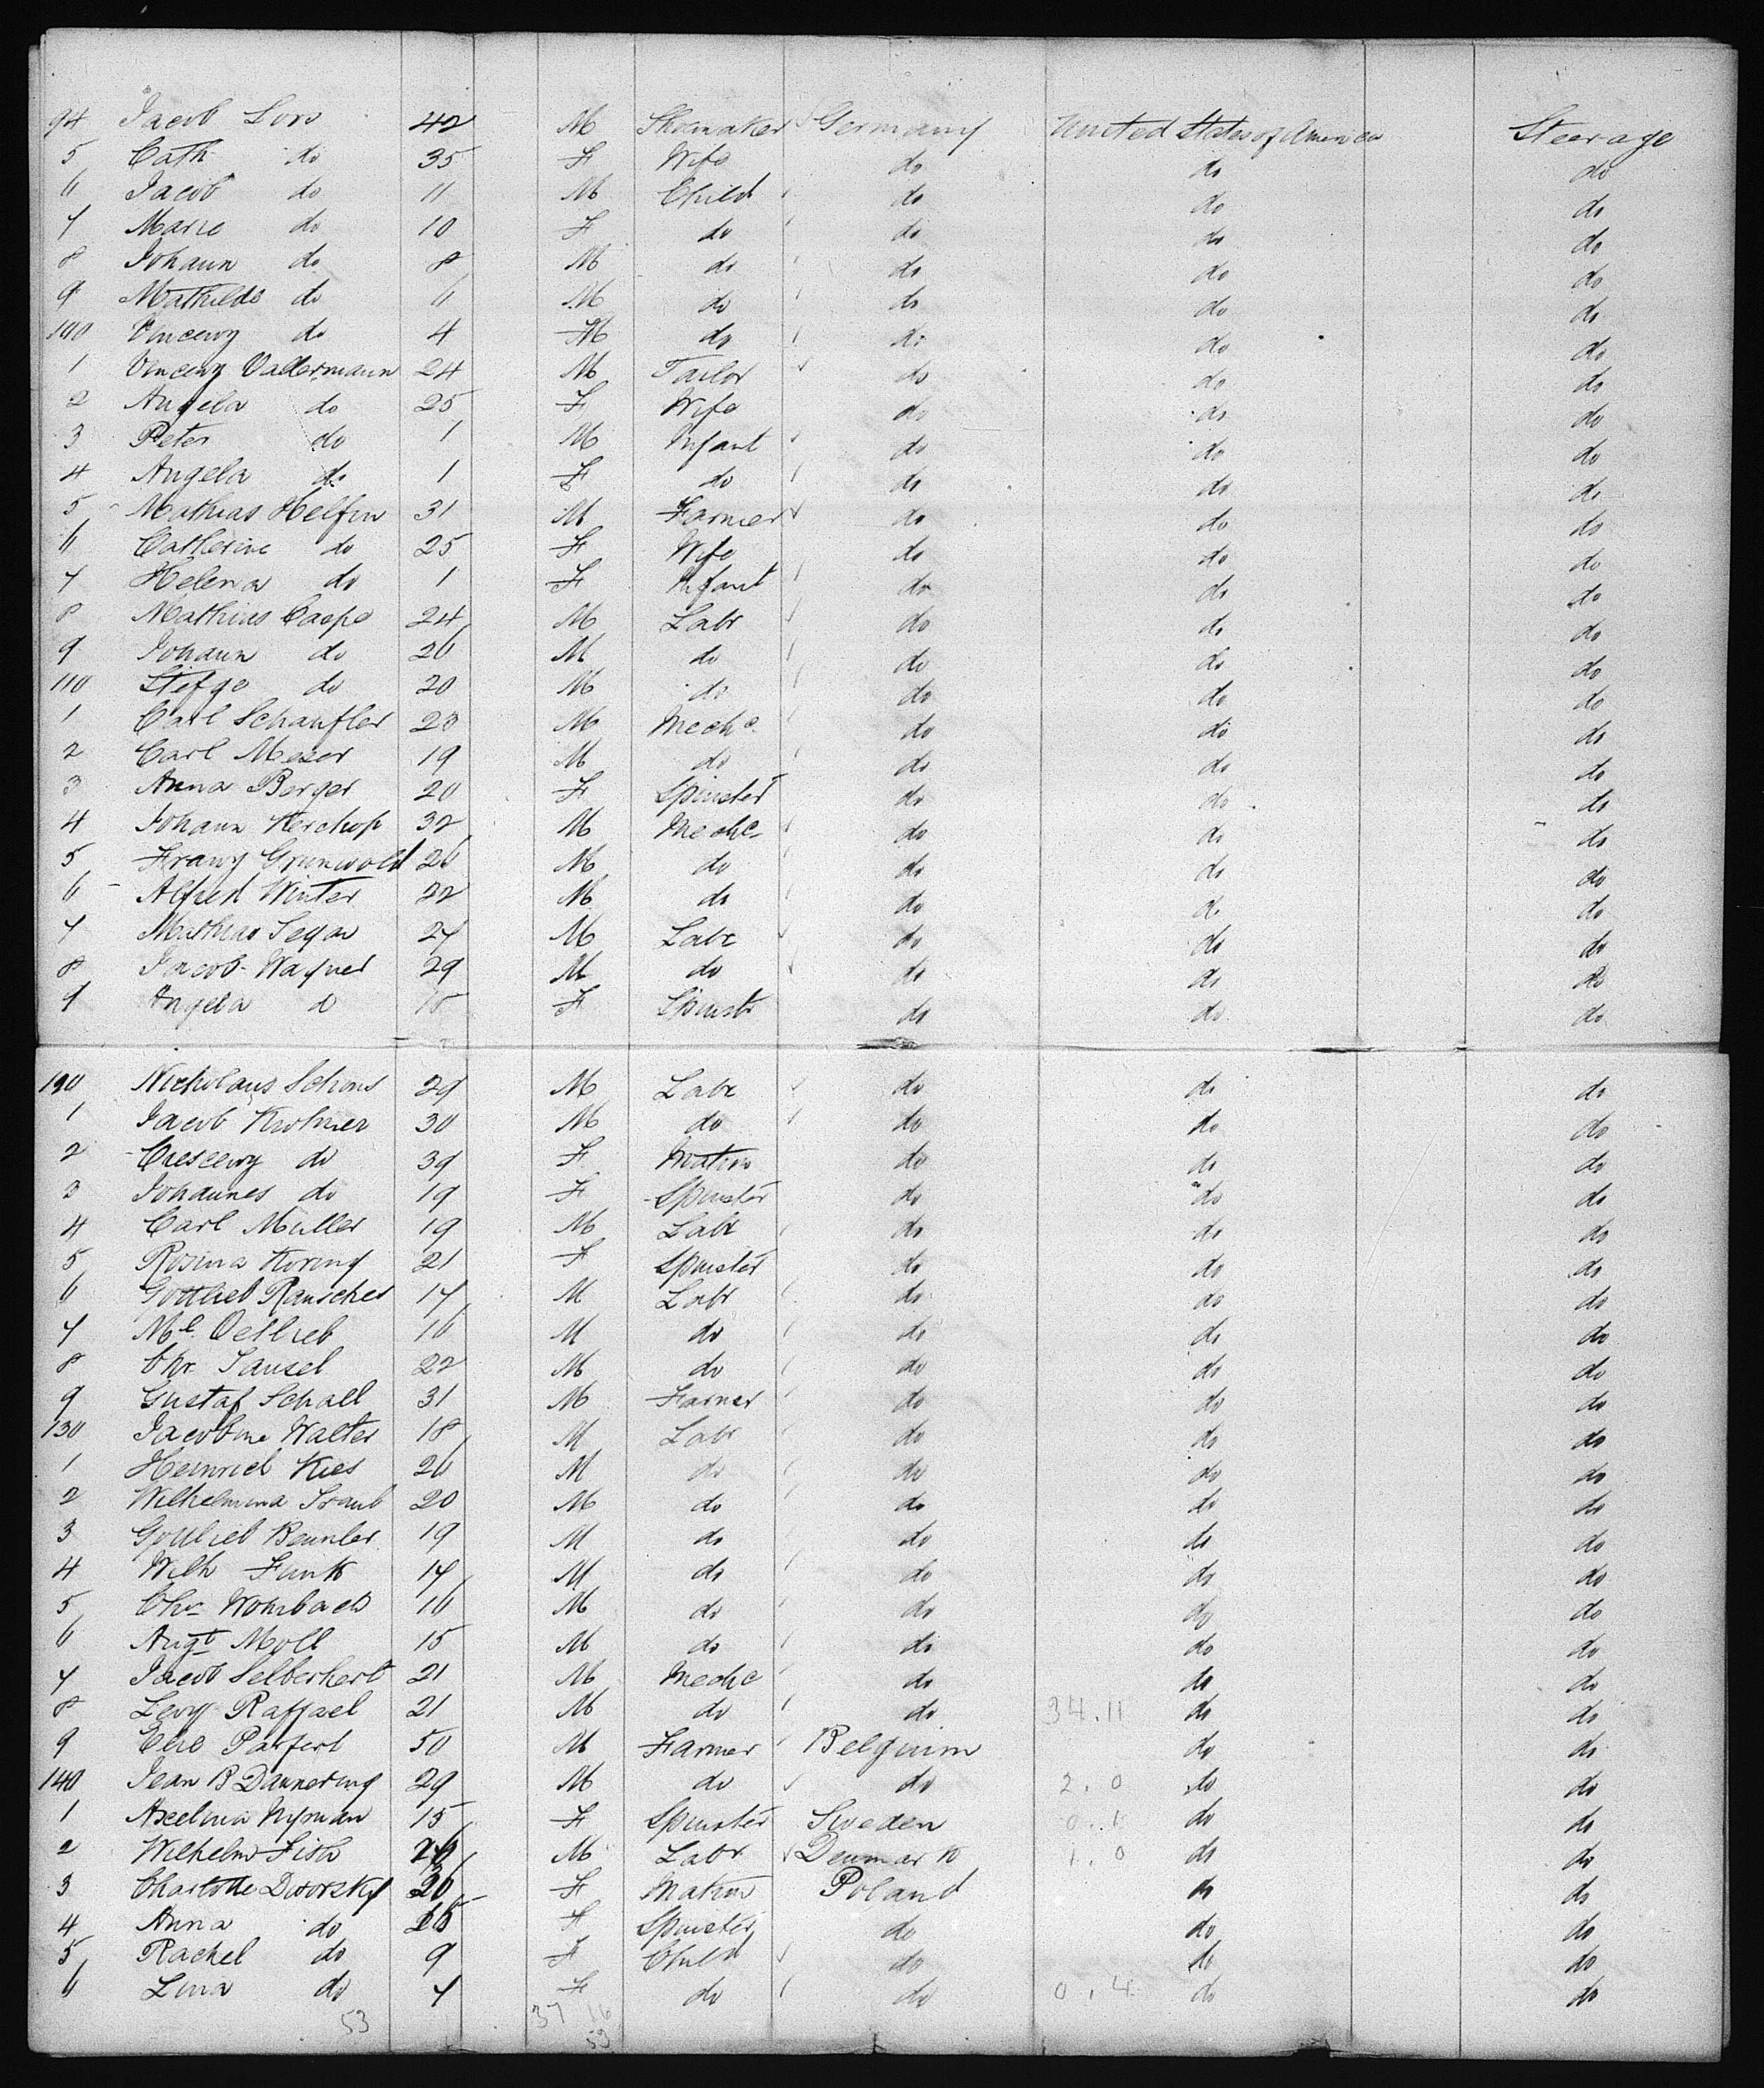 94 Jacob Lors 42 M Shoemaker Germany United States of America Steerage
5 Cath do 35 F Wife do do do
6 Jacob do 11 M Child do do do
7 Marie do 10 F do do do do
8 Johann do 8 M do do do do
9 Mathilde do 6 M do do do do
100 Vincenz do 4 M do do do do
1 Vincenz Valdermann 24 M Tailor do do do
2 Angela do 25 F Wife do do do
3 Peter do 1 M Infant do do do
4 Angela do 1 F do do do do
5 Mathias Helfin 31 M Farmer do do do
6 Catherine do 25 F Wife do do do
7 Helena do 1 F Infant do do do
8 Mathias Caspe 24 M Labr do do do
9 Johann do 26 M do do do do
110 do 20 M do do do do
1 Carl Schaufler 23 M Mechc do do do
2 Carl Meser 19 M do do do do
3 Anna Berger 20 F Spinster do do do
4 Johann Kerchop 32 M Mechc do do do
5 Franz Grunwold 26 M do do do do
6 Alfred Winter 22 M do do do do
7 Mathias Segar 27 M Labr do do do
8 Jacob Wagner 29 M do do do do
9 Angela d F Spinstr do do do
120 Nicholaus Schons 29 M Labr do do do
1 Jacob 30 M do do do do
2 Crescenz do 39 F Matron do do do
3 Johannes do 19 F Spinster do do do
4 Carl Muller 19 M Labr do do do
5 Rosina Koring 21 F Spinster do do do
6 Gottlieb Rauscher 17 M Labr do do do
7 Ml Oetlieb 16 M do do do do
8 Chr Sausel 22 M do do do do
9 Gustaf Schall 31 M Farmer do do do
130 Jacobine Walter 18 M Labr do do do
1 Heinrich Kies 26 M do do do do
2 Wilhelmina Straub 20 M do do do do
3 Gottlieb Beunler 19 M do do do do
4 Wilh Funk 17 M do do do do
5 Chr Wohrbach 16 M do do do do
6 Augt Moll 15 M do do do do
7 Jacob Selberhert 21 M Mechc do do do
8 Levy Raffael 21 M do do 34.11 do do
9 Parfert 50 M Farmer Belguim do do
140 Jean B Dannering 29 M do do 2.0 do do
1 Axelina Nyman 15 F Spinster Sweden 0.1 do do
2 Wilhelm Fish M Labr Denmark 1.0 do do
3 Charlotte Dworsky 36 F Matron Poland do do
4 Anna do F Spinster do do do
5 Rachel do 9 F Child do do do
6 Lina do 7 F do do 0.4 do do
53 37 16
53